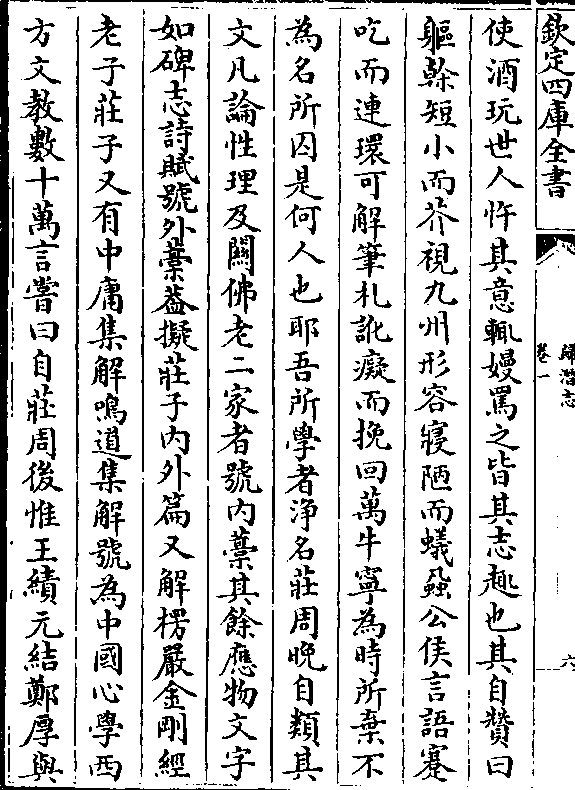 欽定四庫全書
歸潛志
卷一
六
使酒玩世人忤其意輒嫚罵之皆其志趣也其自贊曰
軀榦短小而芥視九州形容寢陋而蟻蝨公侯言語蹇
吃而連環可解筆札訛癡而挽回萬牛寧為時所棄不
為名所囚是何人也耶吾所學者浄名莊周晚自類其
文凡論性理及闗佛老二家者號内藳其餘應物文字
如碑志詩賦號外藳葢擬莊子内外篇又解楞嚴金剛經
老子莊子又有中庸集解鳴道集解號為中國心學西
方文教數十萬言嘗曰自莊周後惟王績元結鄭厚與